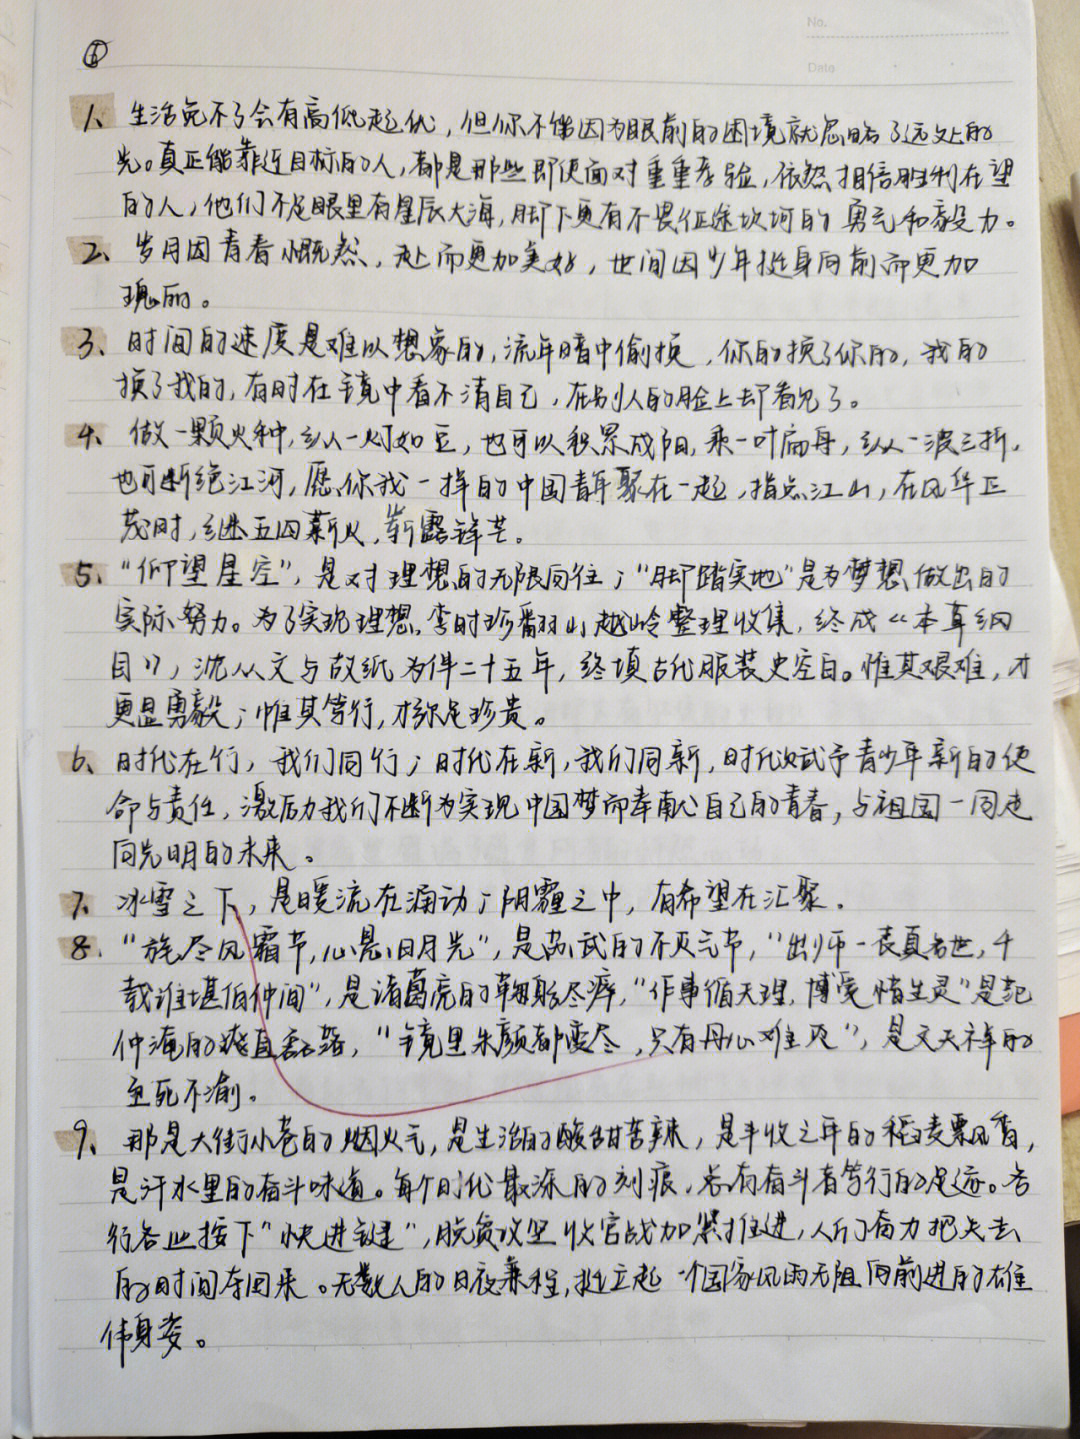 No.
Date
⑥
1、生活免不了会有高低起伏，但你不能因为眼前的困境就忽略了远处的
光。真正能靠近目标的人，都是那些即使面对重重考验，依然相信胜利在望
的人，他们不止眼里有星辰大海，脚下更有不畏征途坎坷的勇气和毅力。
2、岁月因青春慨然，赴而更加美好，世间因少年挺身向前而更加
瑰丽。
3、时间的速度是难以想象的，流年暗中偷换，你的换了你的，我的
换了我的，有时在镜中看不清自己，在别人的脸上却看见了。
4、做一颗火种，纵一灯如豆，也可以积累成阳，乘一叶扁舟，纵一波三折，
也可断绝江河，愿你我一样的中国青年聚在一起，指点江山，在风华正
茂时，继五四薪火，崭露锋芒。
5、“仰望星空”，是对理想的无限向往；“脚踏实地”是为梦想做出的
实际努力。为了实现理想，李时珍翻山越岭整理收集，终成《本草纲
目》，沈从文与故纸为伴二十五年，终填古代服装史空白。惟其艰难，才
更显勇毅；惟其笃行，才弥足珍贵。
6、时代在行，我们同行；时代在新，我们同新，时代赋予青少年新的使
命与责任，激励我们不断为实现中国梦而奉献自己的青春，与祖国一同走
向光明的未来。
7、冰雪之下，是暖流在涌动；阴霾之中，有希望在汇聚。
8、“旄尽风霜节，心悬日月光”，是苏武的不灭气节，“出师一表真名世，千
载谁堪伯仲间”，是诸葛亮的鞠躬尽瘁，“作事循天理，博爱惜生灵”是范
仲淹的，“镜里朱颜都变尽，只有丹心难灭”，是文天祥的
至死不渝。
9、那是大街小巷的烟火气，是生活的酸甜苦辣，是丰收之年的稻麦飘香，
是汗水里的奋斗味道。每个时代最深的刻痕，总有奋斗者笃行的足迹。各
行各业按下“快进键”，脱贫攻坚收官战加紧推进，人们奋力把失去
的时间夺回来。无数人的日夜兼程，挺立起一个国家风雨无阻向前进的雄
伟身姿。